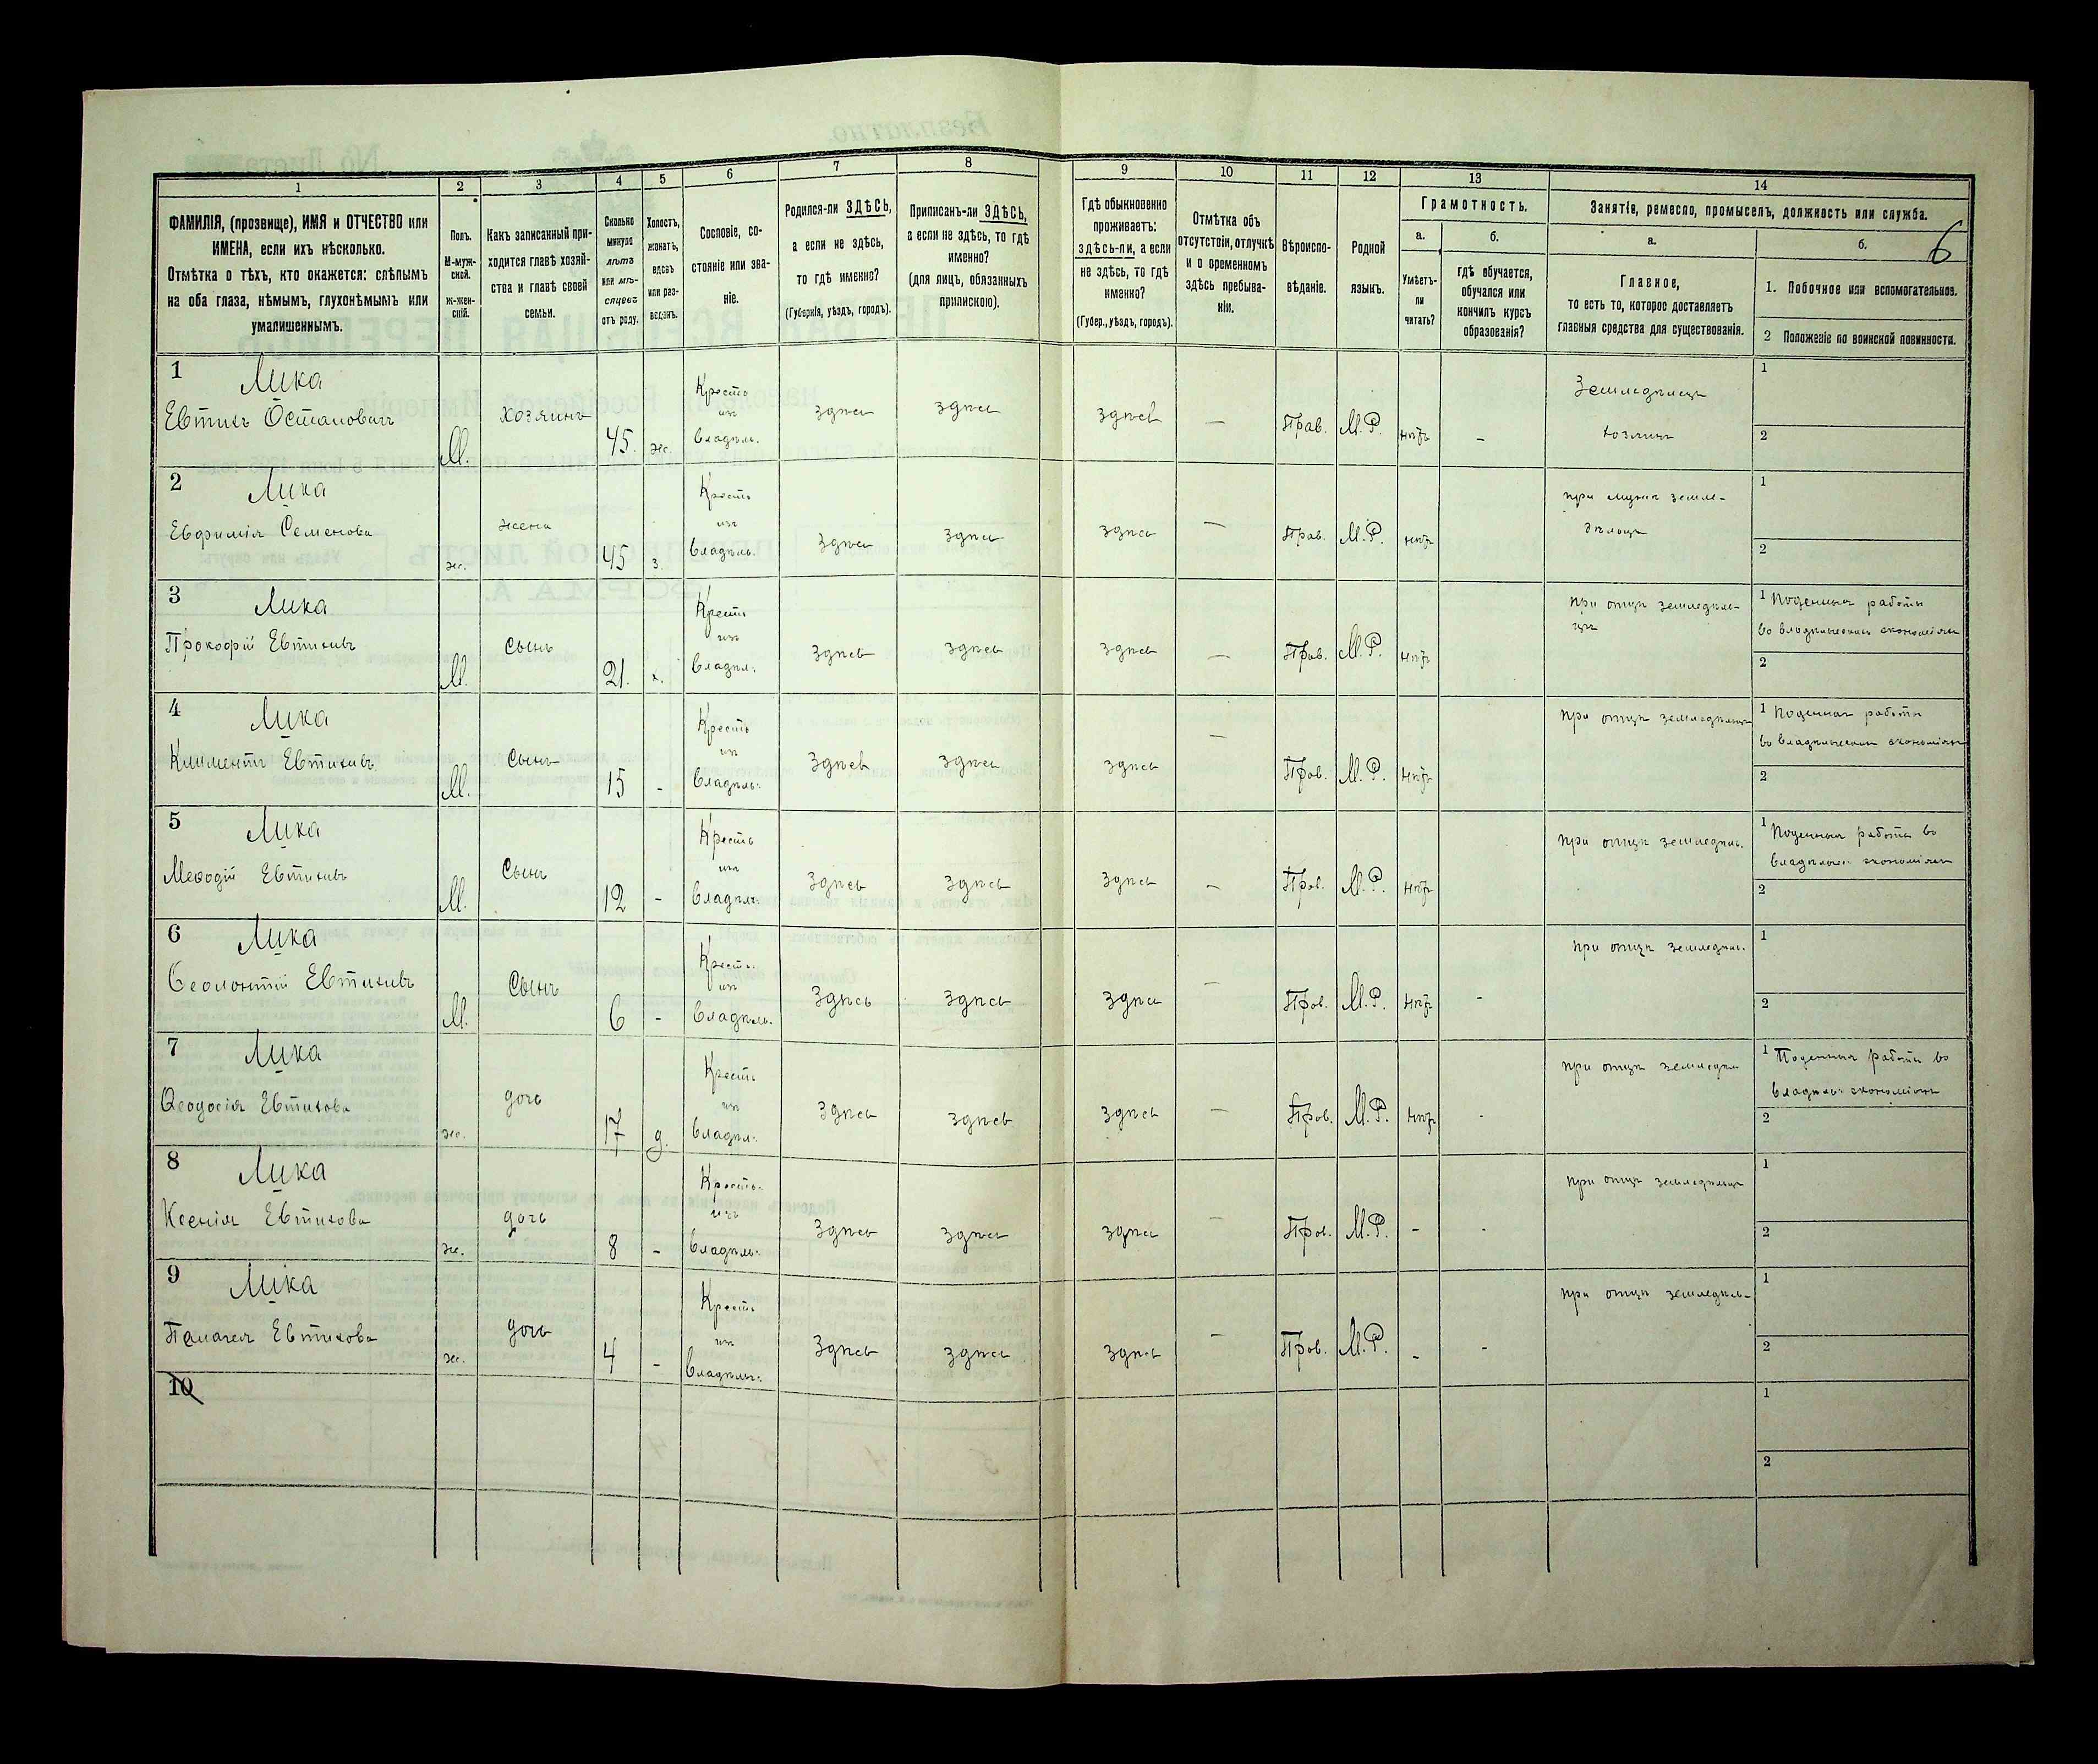 1
ФАМИЛІЯ, (прозвище), ИМЯ и ОТЧЕСТВО или
ИМЕНА, если ихъ нѣсколько.
Отмѣтка о тѣхъ, кто окажется: слѣпымъ
на оба глаза, нѣмымъ, глухонѣмымъ или
умалишеннымъ.
2
Полъ.
М-муж-
ской.
ж-жен-
скій.
3
Какъ записанный при-
ходится главѣ хозяй-
ства и главѣ своей
семьи.
4
Сколько
минуло
лѣтъ
или мѣ-
сяцевъ
отъ роду.
5
Холостъ,
женатъ,
вдовъ
или раз-
веденъ.
6
Сословіе, со-
стояніе или зва-
ніе.
7
Родился-ли ЗДѢСЬ,
а если не здѣсь,
то гдѣ именно?
(Губернія, уѣздъ, городъ).
8
Приписанъ-ли ЗДѢСЬ,
а если не здѣсь, то гдѣ
именно?
(для лицъ, обязанныхъ
припискою).
9
Гдѣ обыкновенно
проживаетъ:
здѣсь-ли, а если
не здѣсь, то гдѣ
именно?
(Губер., уѣздъ, городъ).
10
Отмѣтка объ
отсутствіи, отлучкѣ
и о временномъ
здѣсь пребыва-
ніи.
11
Вѣроиспо-
вѣданіе.
12
Родной
языкъ.
13
Грамотность.
а.
Умѣетъ-
ли
читать?
б.
гдѣ обучается,
обучался или
кончилъ курсъ
образованія?
14
Занятіе, ремесло, промыселъ, должность или служба.
а.
Главное,
то есть то, которое доставляетъ
главныя средства для существованія.
б.
6
1. Побочное или вспомогательное.
2 Положеніе по воинской повинности.
1 Лика
Евтихъ Остаповичъ
М.
хозяинъ
45.
ж.
Крестя
изъ
владѣль.
здѣсь
здѣсь
здѣсь
—
Прав.
М.Р.
нѣтъ
-
Земледѣлецъ
хозяинъ
1
2
2 Лика
Евфимія Семенова
ж.
жена
45
з.
Кресть
изъ
владѣль.
здѣсь
здѣсь
здѣсь
—
Прав.
М.Р.
нѣтъ
при мужѣ земле-
дѣльцѣ
1
2
3 Лика
Прокофій Евтиховъ
М.
Сынъ
21.
х.
Кресть
изъ
владѣл.
здѣсь
здѣсь
здѣсь
—
Прав.
М.Р.
нѣтъ
при отцѣ земледѣль-
цѣ
1 Поденныя работы
во владѣльческихъ экономіяхъ
2
4 Лика
Климентъ Евтиховъ
М.
Сынъ
15
-
Кресть
изъ
владѣль.
здѣсь
здѣсь
здѣсь
—
Прав.
М.Р.
нѣтъ
при отцѣ земледѣльцѣ
1 Поденныя работы
во владѣльческихъ экономіяхъ
2
5 Лика
Меѳодій Евтиховъ
М.
Сынъ
12
-
Кресть
изъ
владѣль.
здѣсь
здѣсь
здѣсь
—
Прав.
М.Р.
нѣтъ
при отцѣ земледѣль.
1 Поденныя работы во
владѣльч. экономіяхъ
2
6 Лика
Евтиховъ
М.
Сынъ
6
-
Кресть.
изъ
владѣль.
здѣсь
здѣсь
здѣсь
—
Прав.
М.Р.
нѣтъ
-
при отцѣ земледѣль.
1
2
7 Лика
Ѳеодосія Евтихова
ж.
дочь
17
д.
Кресть
изъ
владѣл.
здѣсь
здѣсь
здѣсь
—
Прав.
М.Р.
нѣтъ
-
при отцѣ земледѣл
1 Поденныя работы во
владѣль. экономіяхъ
2
8 Лика
Ксенія Евтихова
ж.
дочь
8
-
Кресть.
изъ
владѣль.
здѣсь
здѣсь
здѣсь
—
Прав.
М.Р.
-
-
при отцѣ земледѣльцѣ
1
2
9 Лика
Палагея Евтихова
ж.
дочь
4
-
Кресть
изъ
владѣль.
здѣсь
здѣсь
здѣсь
—
Прав.
М.Р.
-
-
при отцѣ земледѣль-
1
2
10
1
2